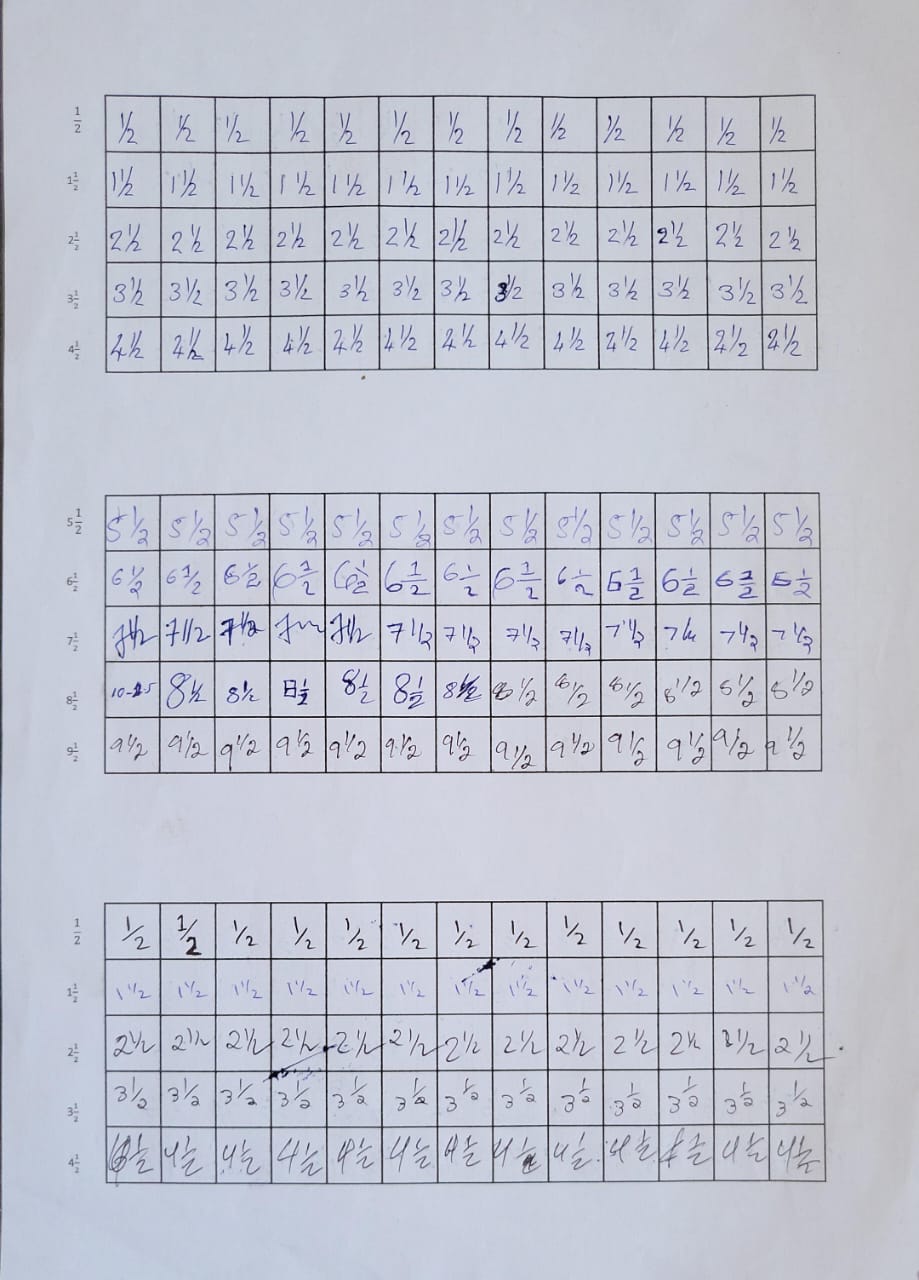 1/2 1/2 1/2 1/2 1/2 1/2 1/2 1/2 1/2 1/2 1/2 1/2 1/2 1/2
1 1/2 1 1/2 1 1/2 1 1/2 1 1/2 1 1/2 1 1/2 1 1/2 1 1/2 1 1/2 1 1/2 1 1/2 1 1/2 1 1/2
2 1/2 2 1/2 2 1/2 2 1/2 2 1/2 2 1/2 2 1/2 2 1/2 2 1/2 2 1/2 2 1/2 2 1/2 2 1/2 2 1/2
3 1/2 3 1/2 3 1/2 3 1/2 3 1/2 3 1/2 3 1/2 3 1/2 3 1/2 3 1/2 3 1/2 3 1/2 3 1/2 3 1/2
4 1/2 4 1/2 4 1/2 4 1/2 4 1/2 4 1/2 4 1/2 4 1/2 4 1/2 4 1/2 4 1/2 4 1/2 4 1/2 4 1/2
5 1/2 5 1/2 5 1/2 5 1/2 5 1/2 5 1/2 5 1/2 5 1/2 5 1/2 5 1/2 5 1/2 5 1/2 5 1/2 5 1/2
6 1/2 6 1/2 6 1/2 6 1/2 6 1/2 6 1/2 6 1/2 6 1/2 6 1/2 6 1/2 6 1/2 6 1/2 6 1/2 6 1/2
7 1/2 7 1/2 7 1/2 7 1/2 7 1/2 7 1/2 7 1/2 7 1/2 7 1/2 7 1/2 7 1/2 7 1/2 7 1/2
8 1/2 8 1/2 8 1/2 8 1/2 8 1/2 8 1/2 8 1/2 8 1/2 8 1/2 8 1/2 8 1/2 8 1/2 8 1/2
9 1/2 9 1/2 9 1/2 9 1/2 9 1/2 9 1/2 9 1/2 9 1/2 9 1/2 9 1/2 9 1/2 9 1/2 9 1/2 9 1/2
1/2 1/2 1/2 1/2 1/2 1/2 1/2 1/2 1/2 1/2 1/2 1/2 1/2 1/2
1 1/2 1 1/2 1 1/2 1 1/2 1 1/2 1 1/2 1 1/2 1 1/2 1 1/2 1 1/2 1 1/2 1 1/2 1 1/2 1 1/2
2 1/2 2 1/2 2 1/2 2 1/2 2 1/2 2 1/2 2 1/2 2 1/2 2 1/2 2 1/2 2 1/2 2 1/2 3 1/2 2 1/2
3 1/2 3 1/2 3 1/2 3 1/2 3 1/2 3 1/2 3 1/2 3 1/2 3 1/2 3 1/2 3 1/2 3 1/2 3 1/2 3 1/2
4 1/2 4 1/2 4 1/2 4 1/2 4 1/2 4 1/2 4 1/2 4 1/2 4 1/2 4 1/2 4 1/2 4 1/2 4 1/2